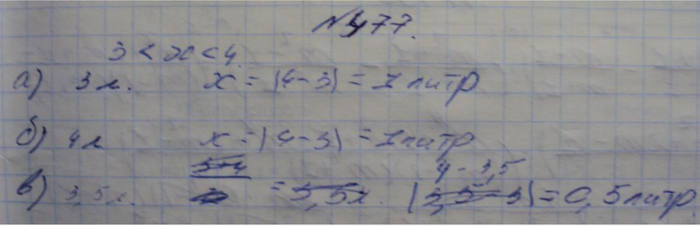 №477.
3 < x < 4.
а) 3 л. x = |4-3| = 1 литр
б) 4 л x = |4-3| = 1 литр
в) 3,5 л. = 3,5 л. |4-3,5| = 0,5 литр